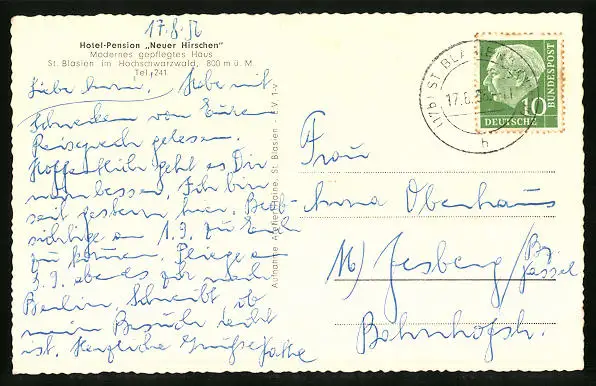 17.8.56
Hotel-Pension „Neuer Hirschen"
Modernes gepflegtes Haus
St. Blasien im Hochschwarzwald, 800 m ü. M.
Tel. 241
Liebe Anna. Habe mit
Schrecken von Eurem
Reisepech gelesen.
Hoffentlich geht es Dir
nun besser. Ich bin
seit gestern hier. Beab-
sichtige am 1.9. zu Euch
zu kommen. Fliege am
3.9. abends
Berlin. Schreibt, ob
mein Besuch recht
ist. Herzliche Grüße
Aufnahme Atelier Haine, St. Blasien
(17b) ST BLASIEN
17.8.56
h
10
DEUTSCHE
BUNDESPOST
Frau
Anna Obenhaus
16) Jesberg / Bz
Kassel
Bahnhofstr.